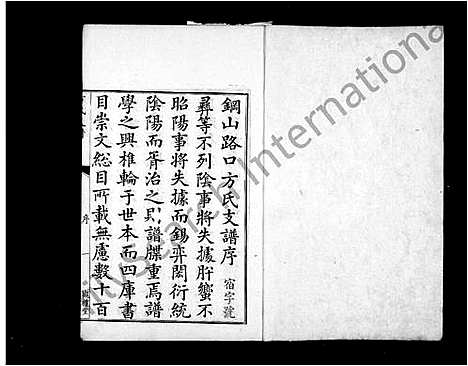 鋼山路口方氏支譜序
宿字號
彞等不列陰事將失據肝蠁不
昭陽事將失據而錫弈閎衍統
陰陽而胥治之則譜牒重焉譜
學之興椎輪于世本而四庫書
目崇文總目所載無慮數十百
序
一